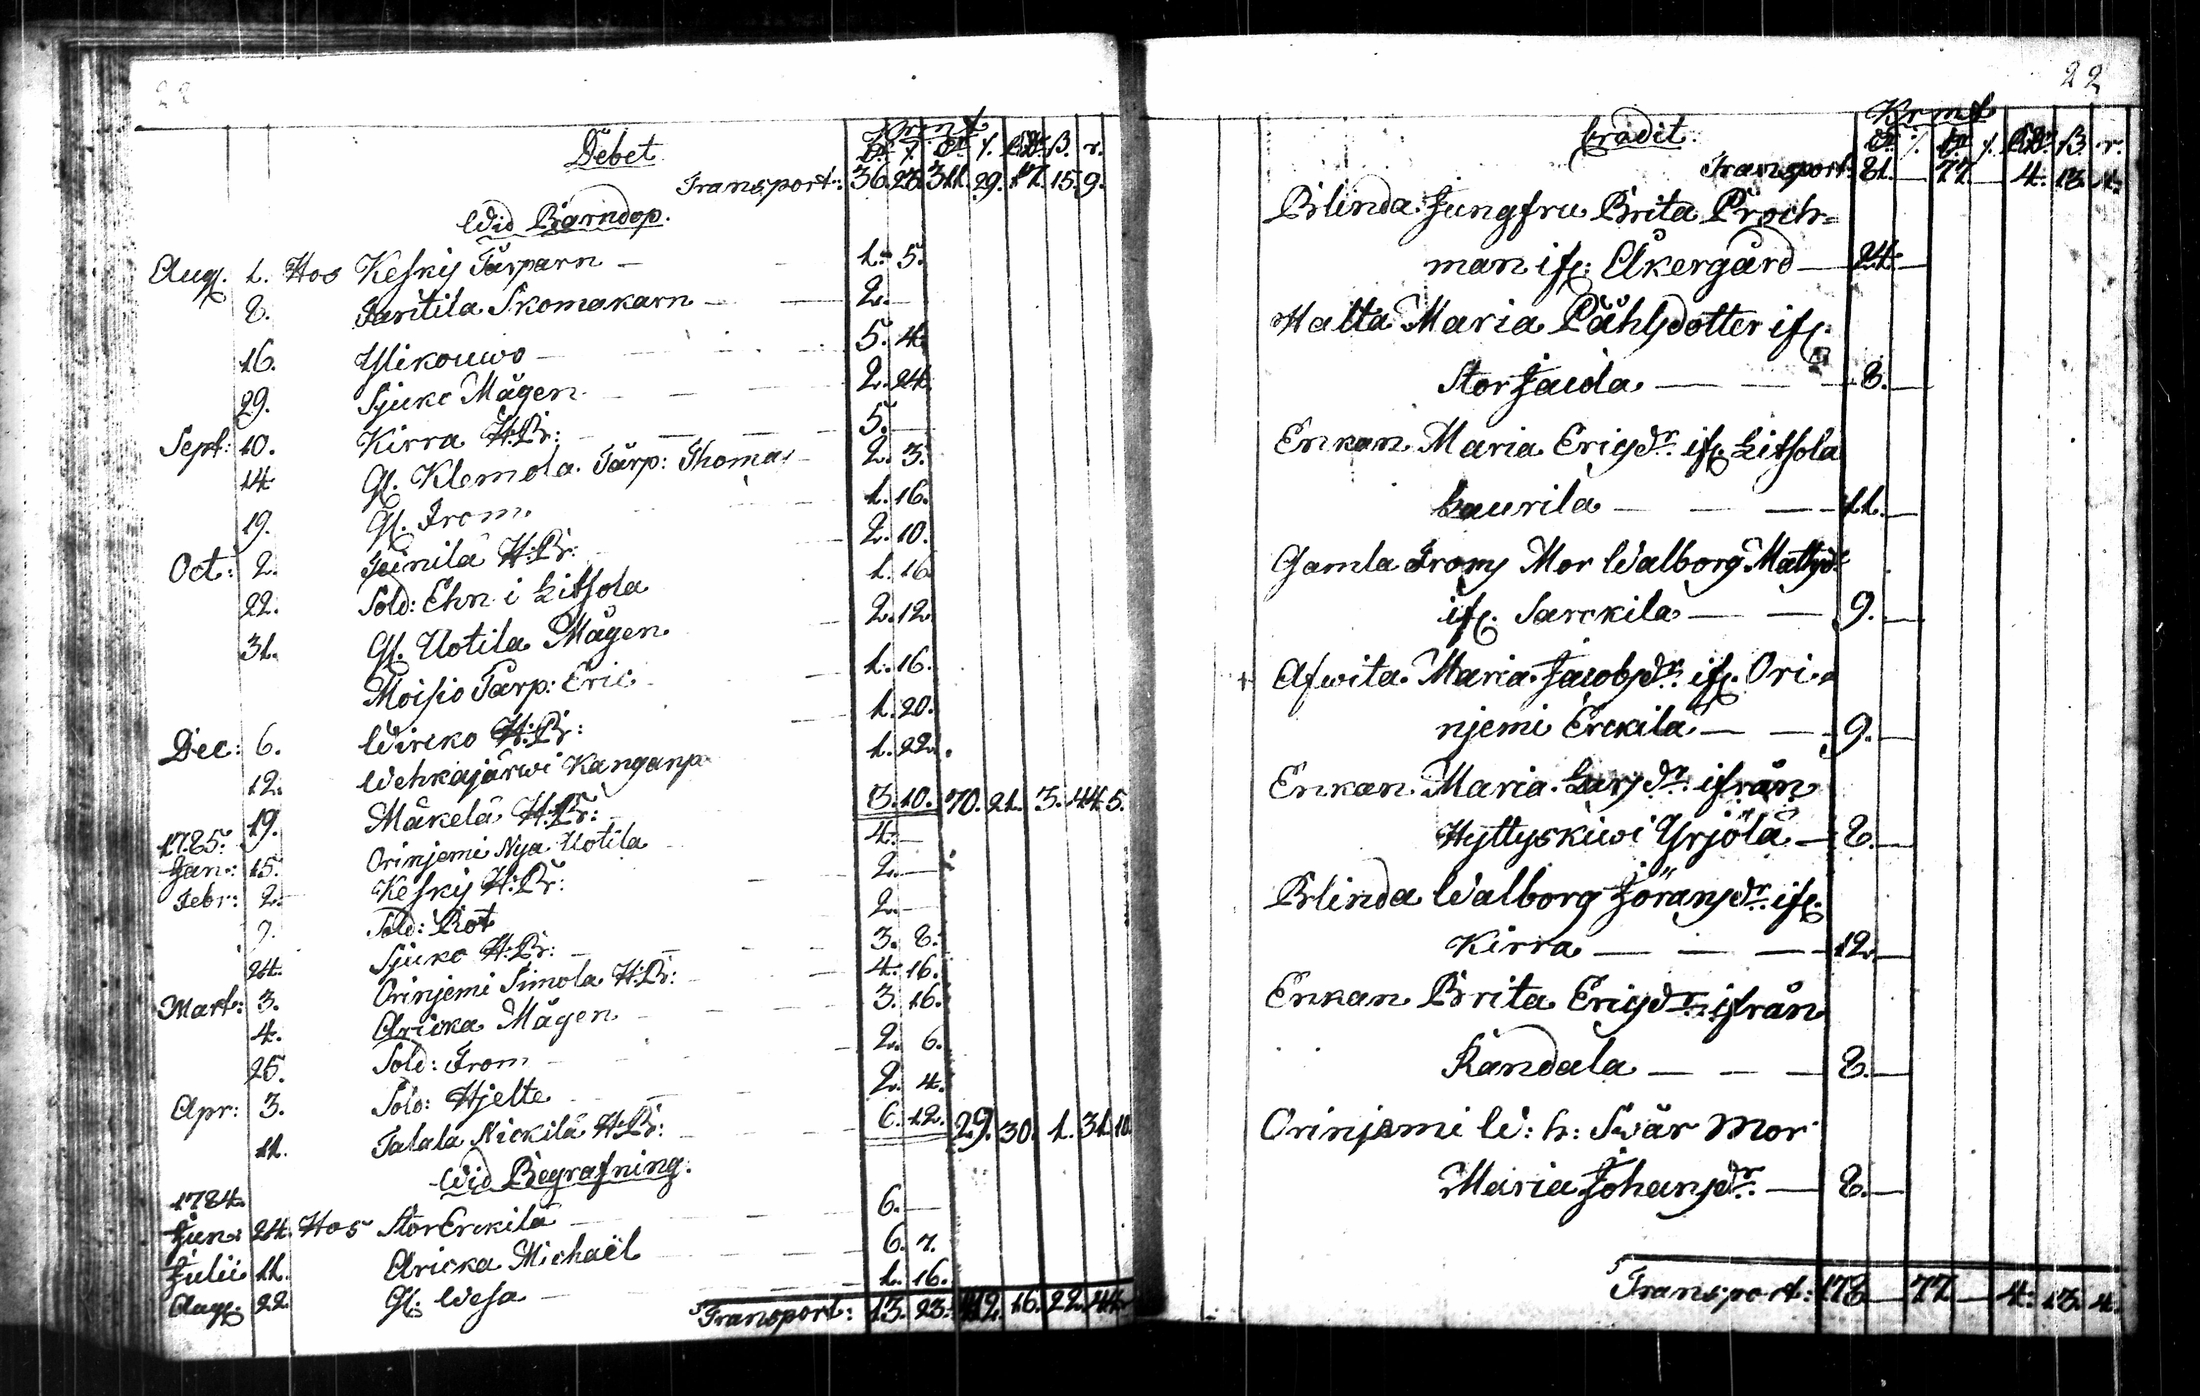 22
Debet
Kr mt
Dr ⁒. Dr ⁒. Rdr. ß. r.
Transport: 36. 23. 311. 29. 17. 15. 9.
Wid Barndop.
Aug. 1. Hos Keskis Tårparn — 1. 5.
8. Jantila Skomakarn — 2. —
16. Ylikouwo — 5. 4.
29. Sjuko Mågen — 2. 24.
Sept: 10. Kirra H:Br: — 5. —
14. Gl. Klemola Tårp: Thomas — 2. 3.
19. Gl. From — 1. 16.
Oct: 2. Junila H:Br: 2. 10.
22. Sold: Ehn i Litsola 1. 16.
31. Gl. Uotila Mågen — 2. 12.
Moisio Tårp: Eric — 1. 16.
Dec: 6. Wircko H:Br: — 1. 20.
12. Wehkajärwi Kanganp. 1. 22.
19. Mäkelä H:Br: 3. 10. 70. 21. 3. 44. 5.
1785.
Jan: 15. Orinjemi Nya Uotila 4. —
Febr: 2. Keskis H:Br: 2. —
7. Sold: Rot 2. —
24. Sjuko H:Br: — 3. 8.
Mart: 3. Orinjemi Simola H:Br: — 4. 16.
4. Aricka Mågen — 3. 16.
25. Sold: From — 2. 6.
Apr: 3. Sold: Hjelte — 2. 4.
11. Talala Nickilä H:Br: 6. 12. 29. 30. 1. 31. 10.
Wid Begrafning.
1784.
Jun: 24. Hos StorErckilä — 6. —
Julii 11. Aricka Michaël — 6. 7.
Aug. 22 Gl: Wesa — 1. 16.
Transport: 13. 23. 412. 16. 22. 44.
22
Credit
Kr mt
Dr ⁒. Dr ⁒. Rdr. ß. r.
Transport: 81. — 77 — 4. 13. 4.
Blinda Jungfru Brita Proch=
man ifr: Åkergård — 24. —
Halta Maria Påhlsdotter ifr.
StorJaula — — 8. —
Enkan Maria Ericsdr. ifr. Litsola
Caurila — — 11. —
Gamla Froms Mor Walborg Mattsdr
ifr. Sarckila — — 9. —
+ Afwita Maria Jacobsdr. ifr. Ori=
njemi Erckilä — — 9. —
Enkan Maria Larsdr. ifrån
Hyttyskiwi Yrjölä — 8. —
Blinda Walborg Jöransdr. ifr.
Kirra — — — 12. —
Enkan Brita Ericsdr. ifrån
Kandala — — — 8. —
Orinjemi W: h: Swär Mor
Maria Johansdr. — 8. —
Transport: 178 — 77 — 4. 13. 4.